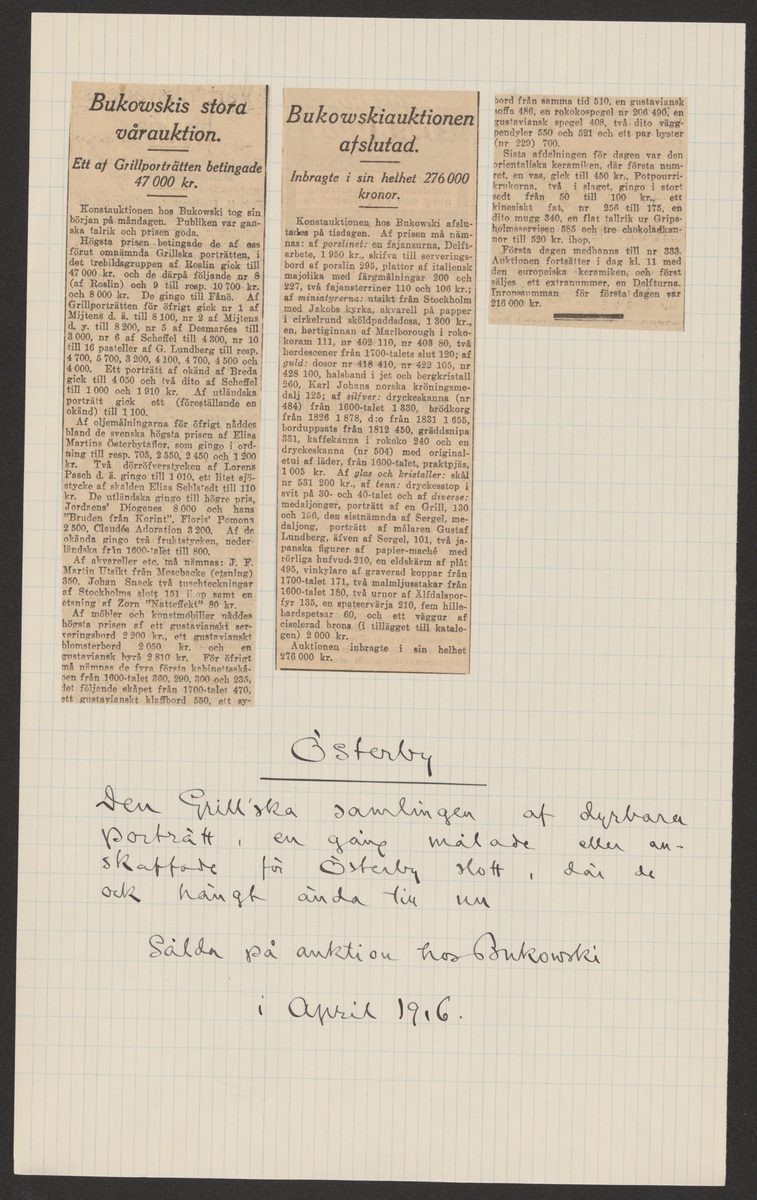 Bukowskis stora
vårauktion.
Ett af Grillporträtten betingade
47 000 kr.
Konstauktionen hos Bukowski tog sin
början på måndagen. Publiken var gan-
ska talrik och prisen goda.
Högsta prisen betingade de af oss
förut omnämnda Grillska porträtten, i
det trebildsgruppen af Roslin gick till
47 000 kr. och de därpå följande nr 8
(af Roslin) och 9 till resp. 10 700 kr.
och 8 000 kr. De gingo till Fånö. Af
Grillporträtten för öfrigt gick nr 1 af
Mijtens d. ä. till 8 100, nr 2 af Mijtens
d. y. till 8 200, nr 5 af Desmarées till
3 000, nr 6 af Scheffel till 4 300, nr 10
till 16 pasteller af G. Lundberg till resp.
4 700, 5 700, 3 200, 4 100, 4 700, 4 500 och
4 000. Ett porträtt af okänd af Breda
gick till 4 050 och två dito af Scheffel
till 1 000 och 1 910 kr. Af utländska
porträtt gick ett (föreställande en
okänd) till 1 100.
Af oljemålningarna för öfrigt nåddes
bland de svenska högsta prisen af Elias
Martins Österbytaflor, som gingo i ord-
ning till resp. 705, 2 550, 2 450 och 1 200
kr. Två dörröfverstycken af Lorens
Pasch d. ä. gingo till 1 010, ett litet sjö-
stycke af skalden Elias Sehlstedt till 110
kr. De utländska gingo till högre pris,
Jordaens' Diogenes 8 000 och hans
"Bruden från Korint", Floris' Pomona
2 500, Claudés Adoration 3 200. Af de
okända gingo två fruktstycken, neder-
ländska från 1600-talet till 800.
Af akvareller etc. må nämnas: J. F.
Martin Utsikt från Mosebacke (etsning)
350, Johan Snack två tuschteckningar
af Stockholms slott 151 ihop samt en
etsning af Zorn "Natteffekt" 80 kr.
Af möbler och konstmöbiler nåddes
högsta prisen af ett gustavianskt ser-
veringsbord 2 200 kr., ett gustavianskt
blomsterbord 2 050 kr. och en
gustaviansk byrå 2 810 kr. För öfrigt
må nämnas de fyra första kabinettsskå-
pen från 1600-talet 360, 290, 300 och 235,
det följande skåpet från 1700-talet 470,
ett gustavianskt klaffbord 550, ett sy-
Bukowskiauktionen
afslutad.
Inbragte i sin helhet 276 000
kronor.
Konstauktionen hos Bukowski afslu-
tades på tisdagen. Af prisen må näm-
nas: af porslinet: en fajansurna, Delft-
arbete, 1 950 kr., skifva till serverings-
bord af porslin 295, plattor af italiensk
majolika med färgmålningar 200 och
227, två fajansterriner 110 och 106 kr.;
af miniatyrerna: utsikt från Stockholm
med Jakobs kyrka, akvarell på papper
i cirkelrund sköldpaddsdosa, 1 300 kr.,
en, hertiginnan af Marlborough i roko-
koram 111, nr 402 110, nr 403 80, två
herdescener från 1700-talets slut 120; af
guld: dosor nr 418 410, nr 422 105, nr
428 100, halsband i jet och bergkristall
260, Karl Johans norska kröningsme-
dalj 125; af silfver: dryckeskanna (nr
484) från 1600-talet 1 330, brödkorg
från 1826 1 878, d:o från 1831 1 655,
borduppsats från 1812 450, gräddsnipa
331, kaffekanna i rokoko 240 och en
dryckeskanna (nr 504) med original-
etui af läder, från 1600-talet, praktpjäs,
1 005 kr. Af glas och kristaller: skål
nr 531 200 kr., af tenn: dryckesstop i
svit på 30- och 40-talet och af diverse:
medaljonger, porträtt af en Grill, 130
och 156, den sistnämnda af Sergel, me-
daljong, porträtt af målaren Gustaf
Lundberg, äfven af Sergel, 101, två ja-
panska figurer af papier-maché med
rörliga hufvud 210, en eldskärm af plåt
495, vinkylare af graverad koppar från
1700-talet 171, två malmljusstakar från
1600-talet 180, två urnor af Älfdalspor-
fyr 135, en spatservärja 210, fem hille-
bardspetsar 60, och ett väggur af
ciselerad brons (i tillägget till katalo-
gen) 2 000 kr.
Auktionen inbragte i sin helhet
276 000 kr.
bord från samma tid 510, en gustaviansk
soffa 486, en rokokospegel nr 206 490, en
gustaviansk spegel 408, två dito vägg-
pendyler 550 och 521 och ett par byster
(nr 229) 700.
Sista afdelningen för dagen var den
orientaliska keramiken, där första num-
ret, en vas, gick till 450 kr., Potpourri-
krukorna, två i slaget, gingo i stort
sedt från 50 till 100 kr., ett
kinesiskt fat, nr 256 till 175, en
dito mugg 340, en flat tallrik ur Grips-
holmsservisen 585 och tre chokoladkan-
nor till 520 kr. ihop.
Första dagen medhanns till nr 333.
Auktionen fortsätter i dag kl. 11 med
den europeiska keramiken, och först
säljes ett extranummer, en Delfturna.
Inropssumman för första dagen var
216 000 kr.
Österby
Den Grill'ska samlingen af dyrbara
porträtt, en gång målade eller an-
skaffade för Österby slott, där de
ock hängt ända till nu
Sålda på auktion hos Bukowski
i April 1916.